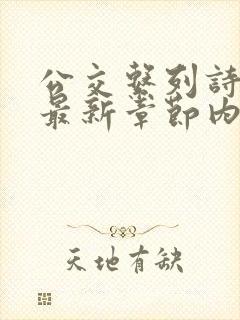 公交繫列詩
最新章節內
天地有缺